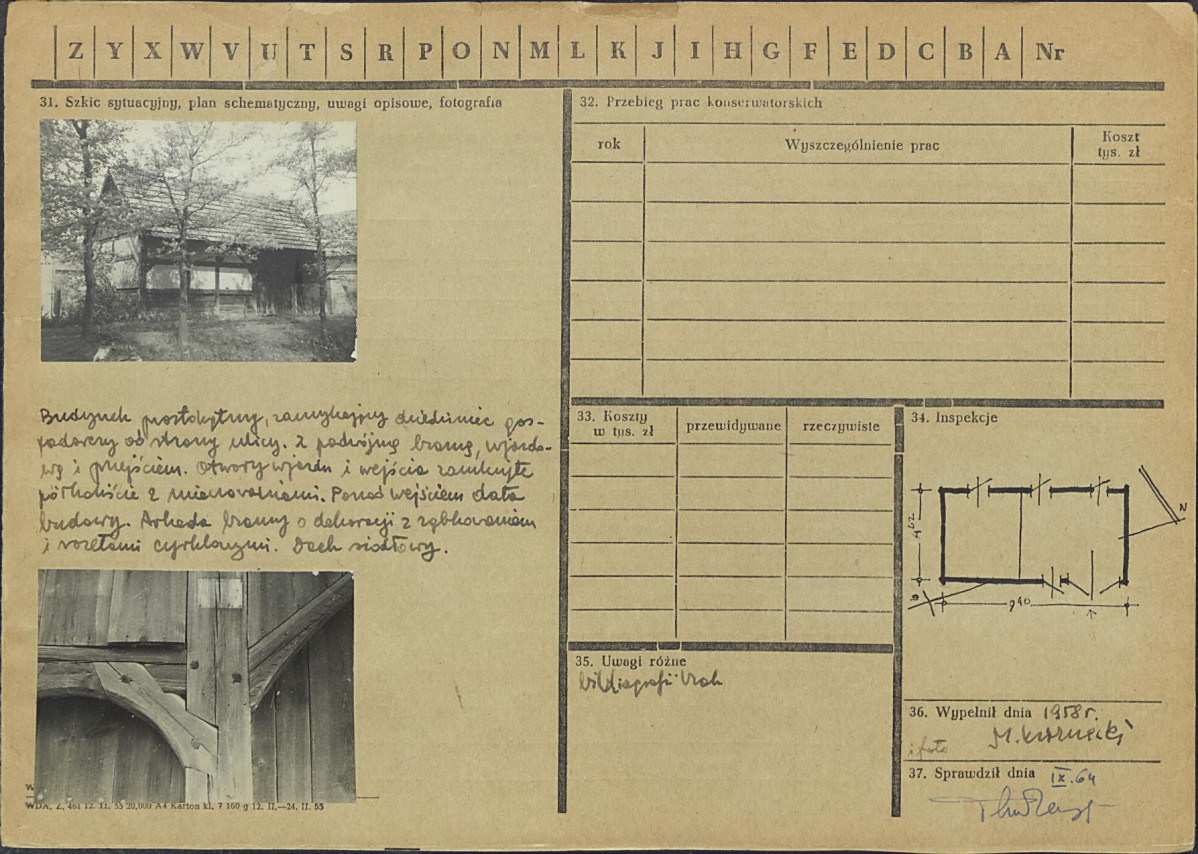 Z Y X W V U T S R P O N M L K J I H G F E D C B A Nr
31. Szkic sytuacyjny, plan schematyczny, uwagi opisowe, fotografia
Budynek prostokątny, zamykający dziedziniec gos-
podarczy od strony ulicy. Z podwójną bramą, wjazdo-
wą i przejściem. Otwory wjazdu i wejścia zamknięte
półkoliście z mieczowaniami. Ponad wejściem data
budowy. Arkada bramy o dekoracji z ząbkowaniem
i rozetami cyrklowymi. Dach siodłowy.
WDA, Z, 461 12. II. 55 20,000 A4 Karton kl. 7 160 g 12. II.—24. II. 55
32. Przebieg prac konserwatorskich
rok
Wyszczególnienie prac
Koszt
tys. zł
33. Koszty
w tys. zł
przewidywane
rzeczywiste
34. Inspekcje
N
452
940
35. Uwagi różne
bibliografii brak
36. Wypełnił dnia 1958 r.
i foto M. Kornecki
37. Sprawdził dnia IX.64